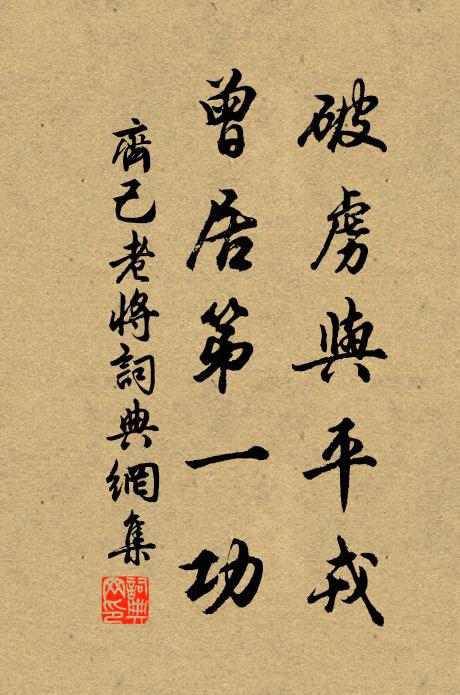 破虜與平戎
曾居第一功
齊己老將詞典網集
詞典網印